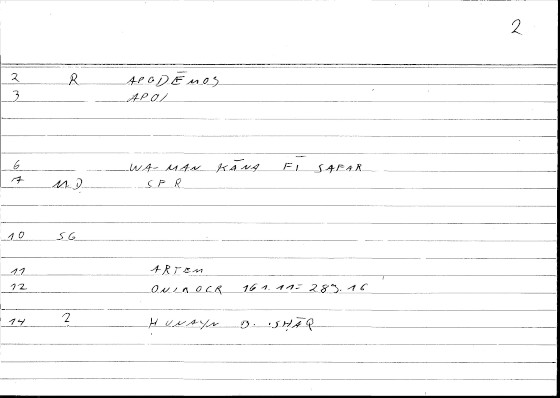 2
2 R APODĒMOS
3 APOI
6 WA-MAN KĀNA FĪ SAFAR
7 MD SFR
10 SG
11 ARTEM
12 ONIROCR 161.11= 289.16
14 2 HUNAYN B. .SHĀQ